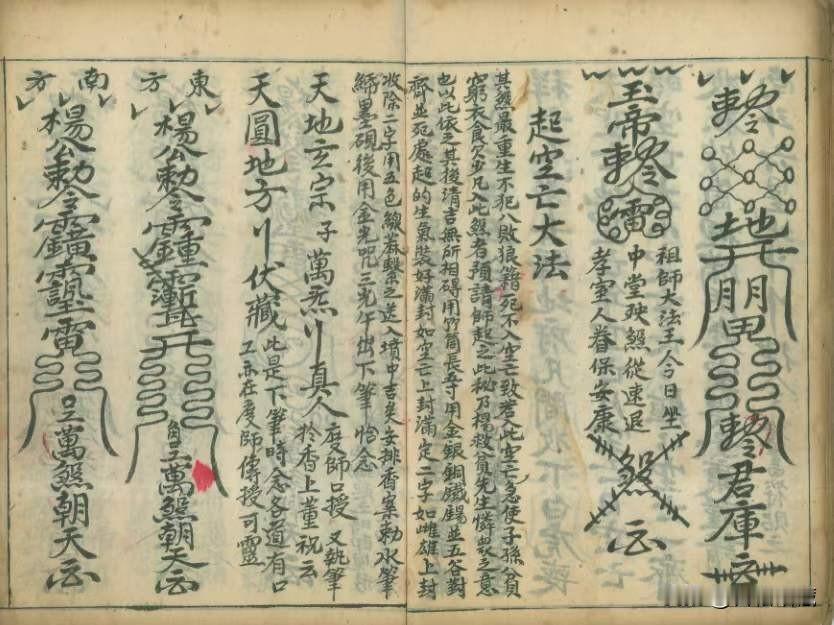 敕令
地
敕令君庫
玉帝敕令
雷
祖師大法王今日坐
中堂殃煞從速退
孝室人眷保安康
煞
起空亡大法
其煞最重生不犯八敗狼籍死不入空亡致若入此空亡急使子孫貧
窮衣食欠少凡入此煞者預請師起之此秘乃楊救貧先生憐憫之意
也以此依之其後清吉無所相碍用竹筒長五寸用金銀銅鐵錫並五谷對
齊並死處起的生氣裝好滿封如空亡上封滿定二字如雌雄上封
收除二字用五色線麻繫之送入墳中吉矣安排香案勅水筆
紙墨硯後用金光咒三光午出下筆
念
天地玄宗子萬炁真人
度師口授又執筆
於香上董祝云
天圓地方伏藏
此是下筆時念各道有口
工亦在度師傳授可靈
東方
楊公勅令
萬煞朝天
南方
楊公勅令
萬煞朝天